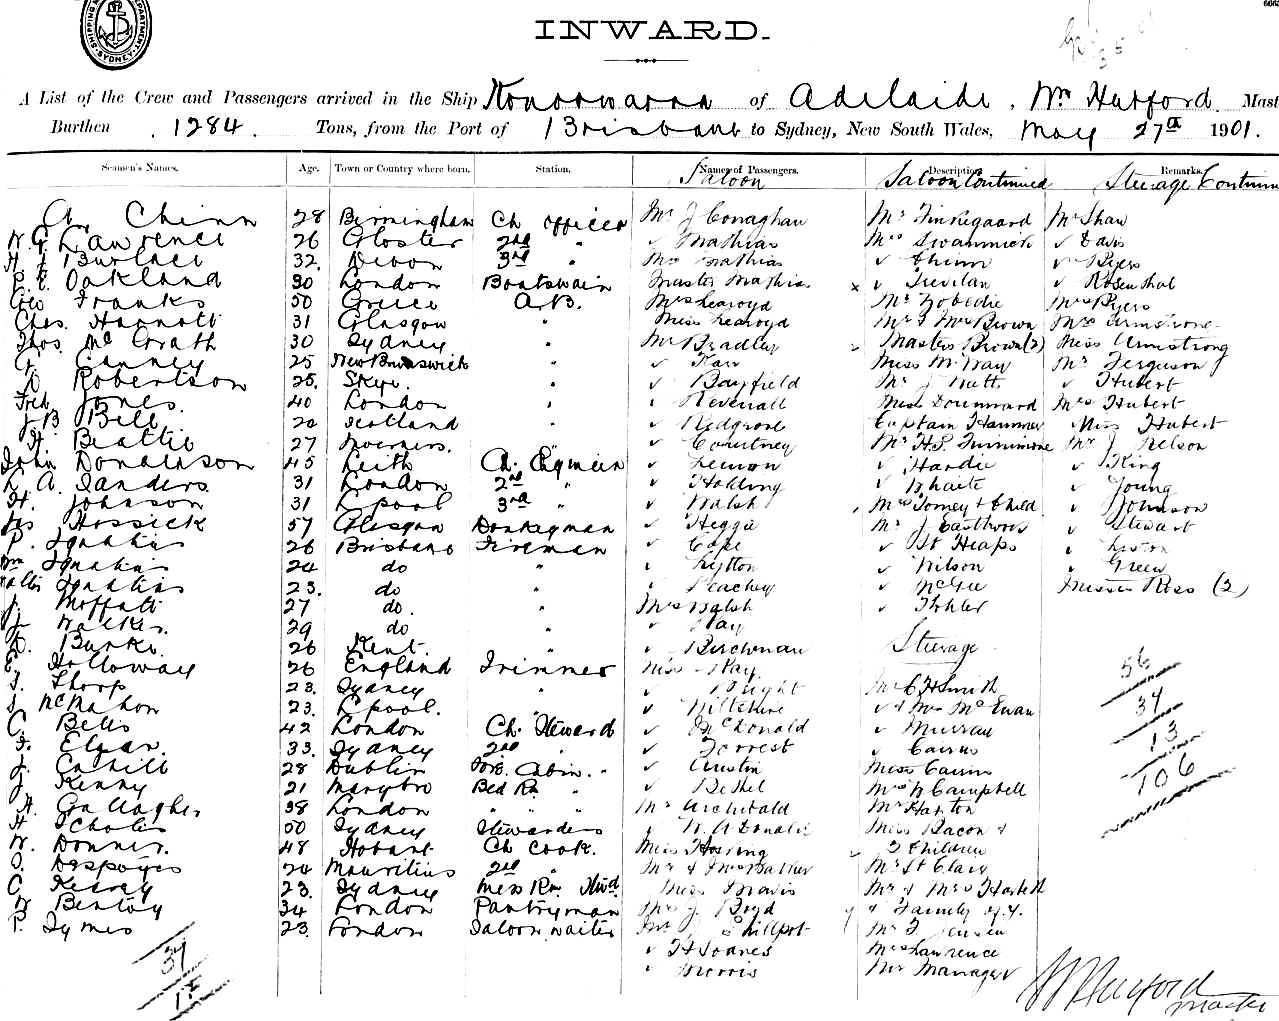 INWARD.
A List of the Crew and Passengers arrived in the Ship Konoowarra of Adelaide, Wm Hurford Mast
Burthen 1284. Tons, from the Port of Brisbane to Sydney, New South Wales, May 27th 1901.
Seamen's Names. Age. Town or Country where born. Station. Names of Passengers. Description. Remarks.
Saloon Saloon Continued Steerage Continu
Chinn 28 Birmingham Ch officer Mr J Conaghan Mr Finnegaard Mr Shaw
W. G. Lawrence 26 Gloster 2nd " ✓ Mathias Mrs Swannick ✓ Davis
32. Devon 3rd " Mrs Mathias ✓ Chinn ✓ Byers
Oakland 30 London Boatswain Master Mathias x ✓ Trevilan ✓ Rosenthal
Geo Franks 50 Greece A.B. Mrs Learoyd Mr Nobedie Mrs Byers
Chas. Hannott 31 Glasgow " Miss Learoyd Mr & Mrs Brown Mrs Armstrong
Thos. McGrath 30 Sydney " Mr Bradley Masters Brown (2) Miss Armstrong
Canney 25 New Brunswick " ✓ Farr Miss McNay Mr Ferguson
D. Robertson 25. Skye. " ✓ Bayfield Mr J Nutt ✓ Hubert
Fred Jones. 40 London " ✓ Revenall Miss Downward Mrs Hubert
J B Bell 20 Scotland " ✓ Redgrove Captain Hammer Miss Hubert
H. Beattie 27 Inverness. " ✓ Courtney Mr H.S. Mr J Nelson
John Donaldson 45 Leith Ch. Engineer ✓ Lennon ✓ Hardie ✓ King
L. A. Sanders. 31 London 2nd " ✓ Holding ✓ Whaite ✓ Young
H. Johnson 31 Lpool 3rd " ✓ Walsh Mrs Torney & Child ✓ Johnson
Jas Hossick 57 Glasgow Donkeyman ✓ Heggie Mr J Easthorn ✓ Stewart
P. Ignatius 26 Brisbane Fireman ✓ Cape ✓ St Heaps ✓ Liston
Wm Ignatius 24 do " ✓ Lytton ✓ Wilson ✓ Green
Walter Ignatius 23. do " ✓ Peachey ✓ McGee Misses Ross (2)
J. Moffatt 27 do. " Mrs Walsh ✓ Kohler
J. Walker. 29 do " ✓ Hay
D. Burke. 26 Kent. " ✓ Birchman Steerage
E. Holloway 26 England Trimmer Miss Hay 56
J. Thorp 23. Sydney " ✓ Wright Mr C H Smith
J. McMahon 23. Lpool. " ✓ Wiltshire ✓ & Mrs McEwan 37
C. Betts 42 London Ch. Steward ✓ McDonald ✓ Murray
F. Elgar. 33. Sydney 2nd " ✓ Forrest ✓ Cairns 13
J. Cahill 28 Dublin Fore. Cabin. " ✓ Austin Miss Cairns
J. Kenny 21 Marybro Bed Rm " ✓ Bethel Mrs N Campbell 106
H. Gallagher 38 London " " Mr Archibald Mr Haxton
H Scholes 50 Sydney Stewardess ✓ W. A Donald Miss Bacon &
W. Donner. 48 Hobart Ch Cook. Miss Hosring 2 Children
O. Despoges 24 Mauritius 2nd " Mr & Mrs Barker Mr St Clair
C. Keavey 23. Sydney Mess Rm Stwd Miss Travis Mr & Mrs Haskell
W Bentay 34 London Pantryman Mr J Boyd & Family of 4.
P. Symes 23. London Saloon waiter Mr J Phillpot Mr F Jensen
37 ✓ H Soanes Mrs Lawrence
✓ Morris Mr Manager
W Hurford
Master